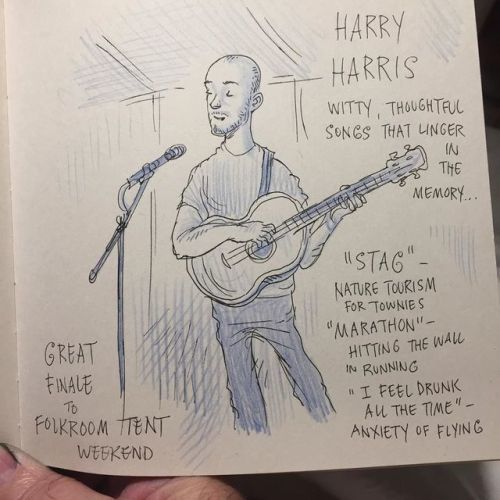 HARRY
HARRIS
WITTY, THOUGHTFUL
SONGS THAT LINGER
IN
THE
MEMORY...
"STAG" –
NATURE TOURISM
FOR TOWNIES
"MARATHON" –
HITTING THE WALL
IN RUNNING
"I FEEL DRUNK
ALL THE TIME" –
ANXIETY OF FLYING
GREAT
FINALE
TO
FOLKROOM TTENT
WEEKEND